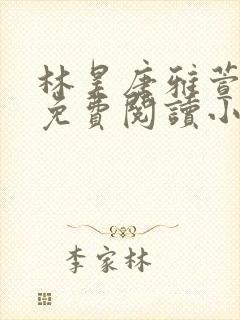 林昊唐雅萱
免費閱讀小
李家林